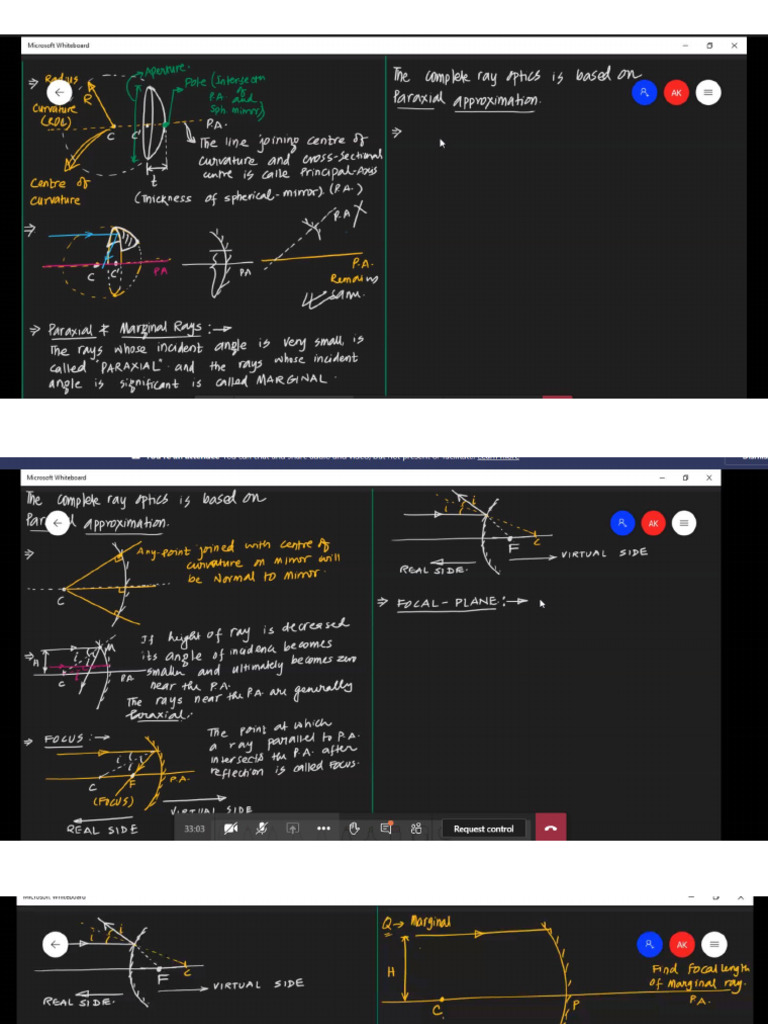 Microsoft Whiteboard
⇒ Radius
of
curvature
(ROC)
R
Aperture.
Pole (Intersection
of
P.A. and
Sph. mirror)
P.A.
C
C'
t
The line joining centre of
curvature and cross-sectional
centre is calle Principal-Axis
(P.A.)
(Thickness of spherical-mirror).
Centre of
curvature
⇒
C
C'
P.A
PA
P.A
P.A.
Remains
same.
⇒ Paraxial & Marginal Rays :→
The rays whose incident angle is very small, is
called "PARAXIAL" and the rays whose incident
angle is significant is called MARGINAL.
The complete ray optics is based on
Paraxial approximation.
⇒
AK
Microsoft Whiteboard
The complete ray optics is based on
approximation.
⇒
Any-point joined with centre of
curvature on mirror will
be Normal to mirror.
C
⇒
H
M
i
i
C
P.A.
If height of ray is decreased
its angle of incidence becomes
smaller and ultimately becomes zero
near the P.A.
The rays near the P.A. are generally
Paraxial.
⇒ FOCUS :→
C
F
P.A.
(FOCUS)
The point at which
a ray parallel to P.A.
intersects the P.A. after
reflection is called Focus.
VIRTUAL SIDE
REAL SIDE
i
i
F
C
VIRTUAL SIDE
REAL SIDE.
⇒ FOCAL - PLANE :→
AK
33:03
Request control
Microsoft Whiteboard
i
i
F
C
VIRTUAL SIDE
REAL SIDE.
Q → Marginal
H
C
P
P.A.
Find focal length
of marginal ray.
AK